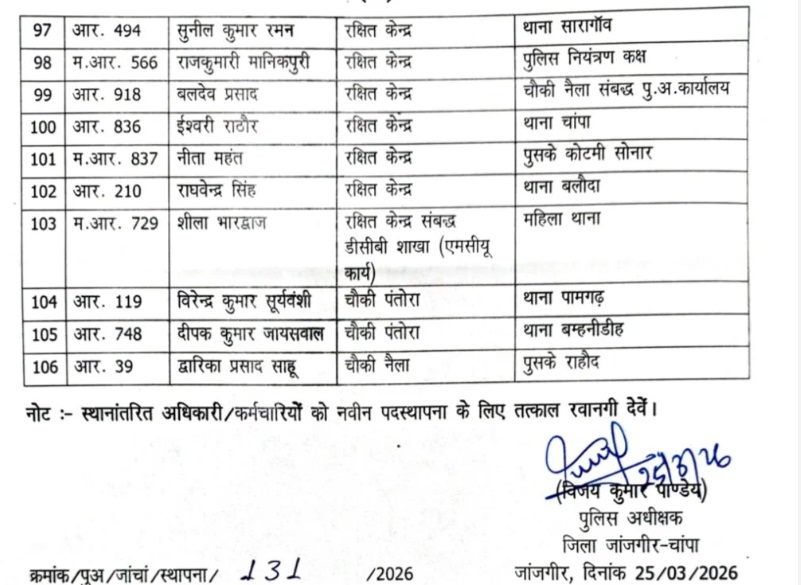 97 आर. 494 सुनील कुमार रमन रक्षित केन्द्र थाना सारागॉव
98 म.आर. 566 राजकुमारी मानिकपुरी रक्षित केन्द्र पुलिस नियंत्रण कक्ष
99 आर. 918 बलदेव प्रसाद रक्षित केन्द्र चौकी नैला संबद्ध पु.अ.कार्यालय
100 आर. 836 ईश्वरी राठौर रक्षित केन्द्र थाना चांपा
101 म.आर. 837 नीता महंत रक्षित केन्द्र पुसके कोटमी सोनार
102 आर. 210 राघवेन्द्र सिंह रक्षित केन्द्र थाना बलौदा
103 म.आर. 729 शीला भारद्वाज रक्षित केन्द्र संबद्ध महिला थाना
डीसीबी शाखा (एमसीयू
कार्य)
104 आर. 119 विरेन्द्र कुमार सूर्यवंशी चौकी पंतोरा थाना पामगढ़
105 आर. 748 दीपक कुमार जायसवाल चौकी पंतोरा थाना बम्हनीडीह
106 आर. 39 द्वारिका प्रसाद साहू चौकी नैला पुसके राहौद
नोट :- स्थानांतरित अधिकारी/कर्मचारियों को नवीन पदस्थापना के लिए तत्काल रवानगी देवें।
25/3/26
(विजय कुमार पाण्डेय)
पुलिस अधीक्षक
जिला जांजगीर-चांपा
क्रमांक/पुअ/जांचां/स्थापना/ 131 /2026 जांजगीर, दिनांक 25/03/2026